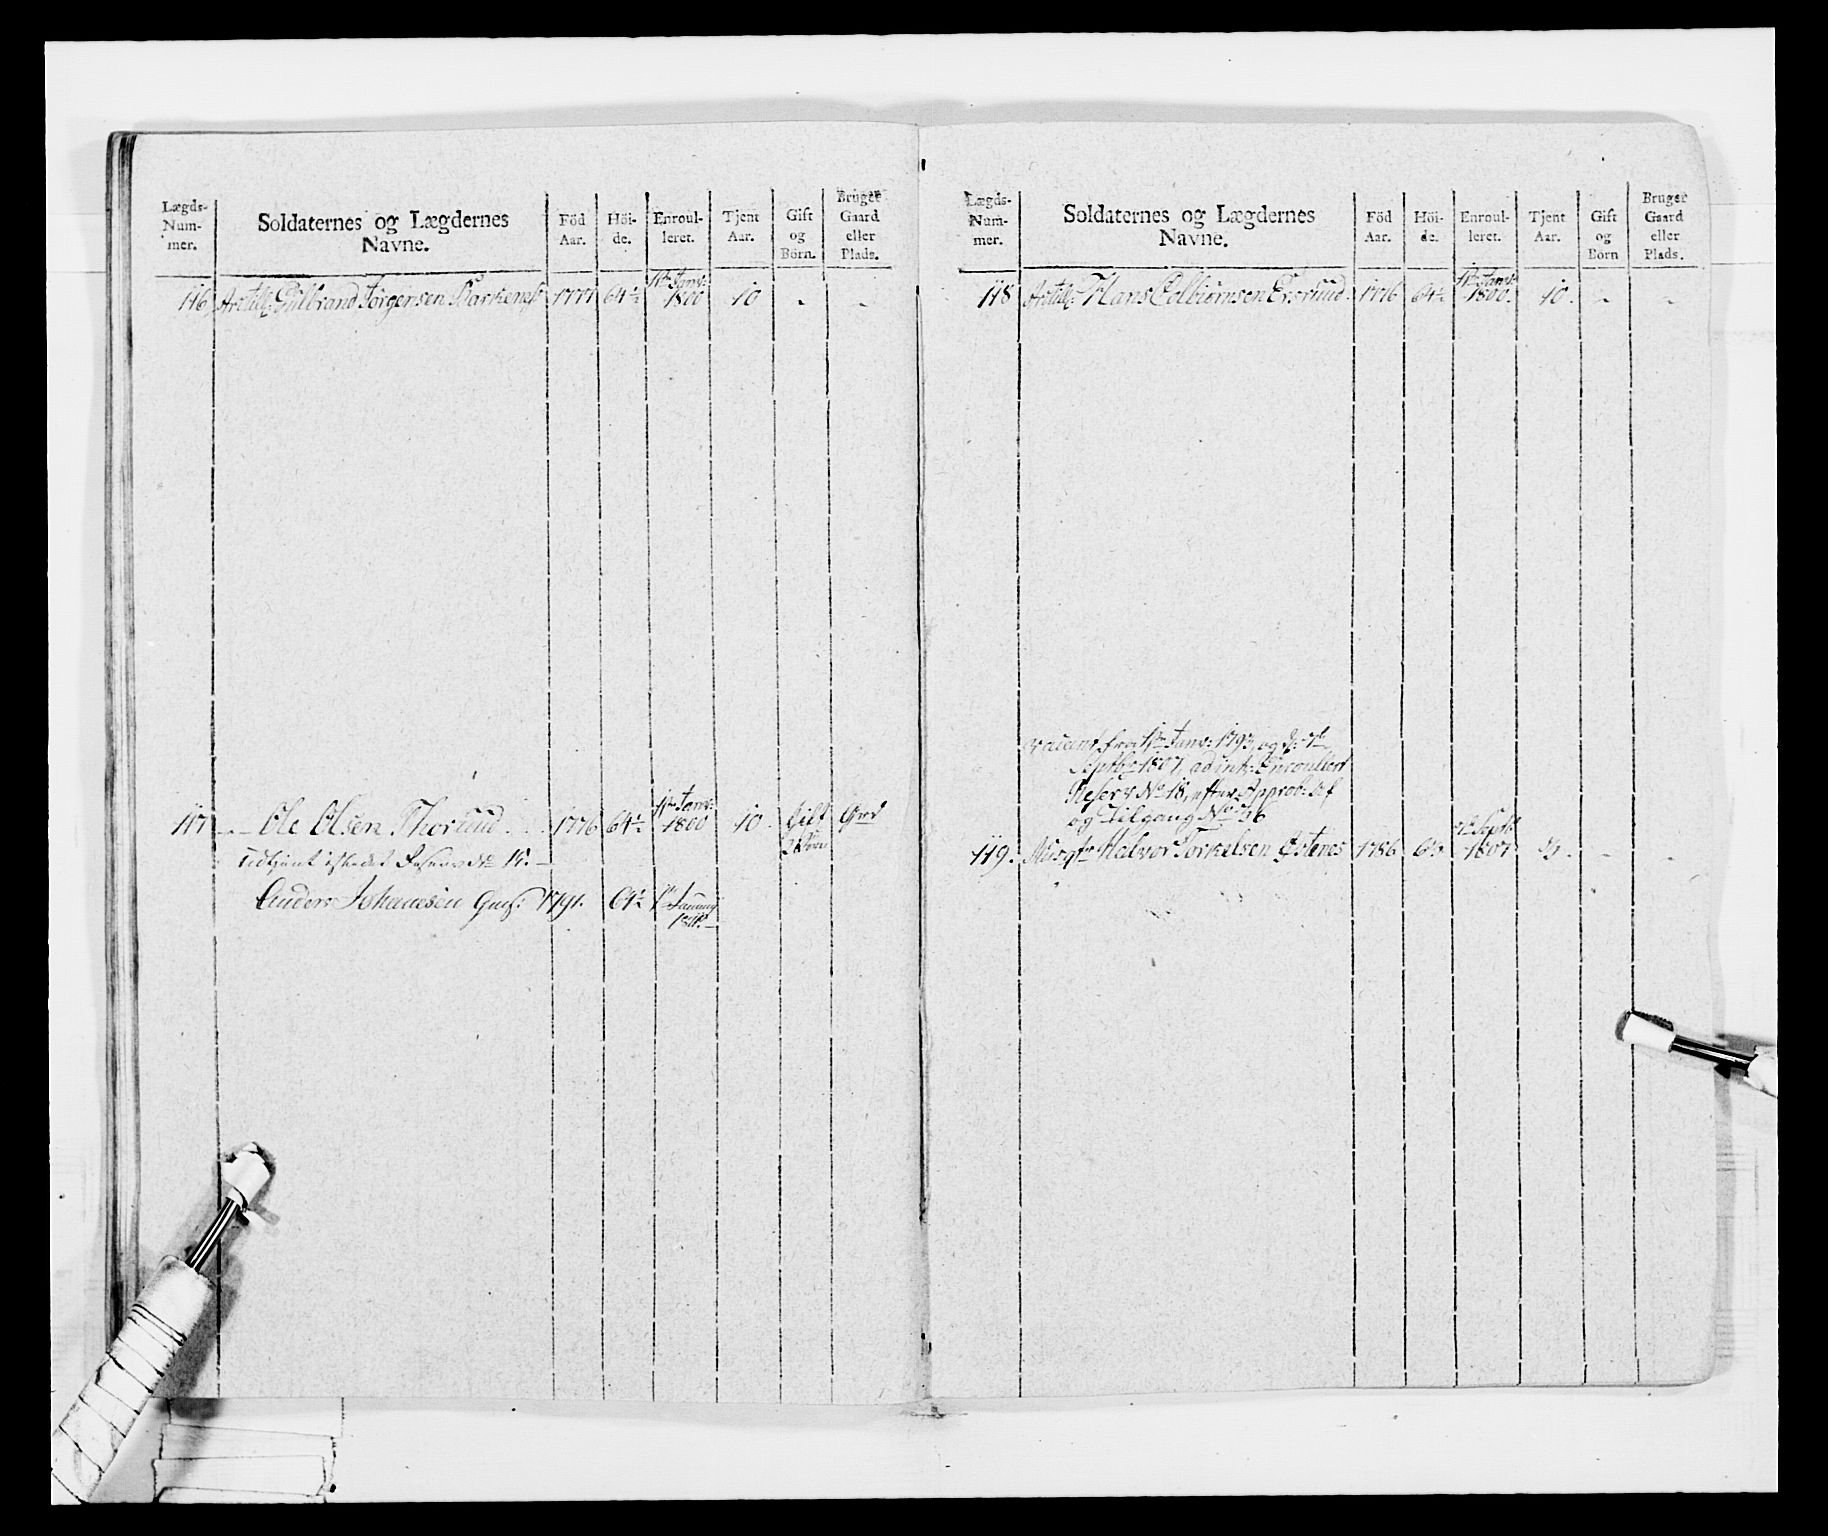 Lægds-
Num-
mer.
Soldaternes og Lægdernes
Navne.
Föd
Aar.
Höi-
de.
Enroul-
leret.
Tjent
Aar.
Gift
og
Börn.
Bruger
Gaard
eller
Plads.
116 Artill: Gulbrand Jörgensen 1777 64½ 1ste Janv: 1800 10 - -
117 - Ole Olsen Thorsrud 1776 64½ 1ste Janv: 1800 10 Gift
2 Börn
Grd
Anders Johanesen 1791. 64½ 1ste January
1811.
Lægds-
Num-
mer.
Soldaternes og Lægdernes
Navne.
Föd
Aar.
Höi-
de.
Enroul-
leret.
Tjent
Aar.
Gift
og
Börn
Bruger
Gaard
eller
Plads.
118 Artill: Hans 1776 64½ 1ste Janv: 1800. 10. - -
vacant fra 1ste Janv: 1793, og d: 7de
Septbr 1807, ad int: Enroullert
Reserv No 18, efter Approb: Af
og Tilgang No 36
119. Musqtr Halvor Torkelsen Östenes 1786 7de Septbr 1807 - -